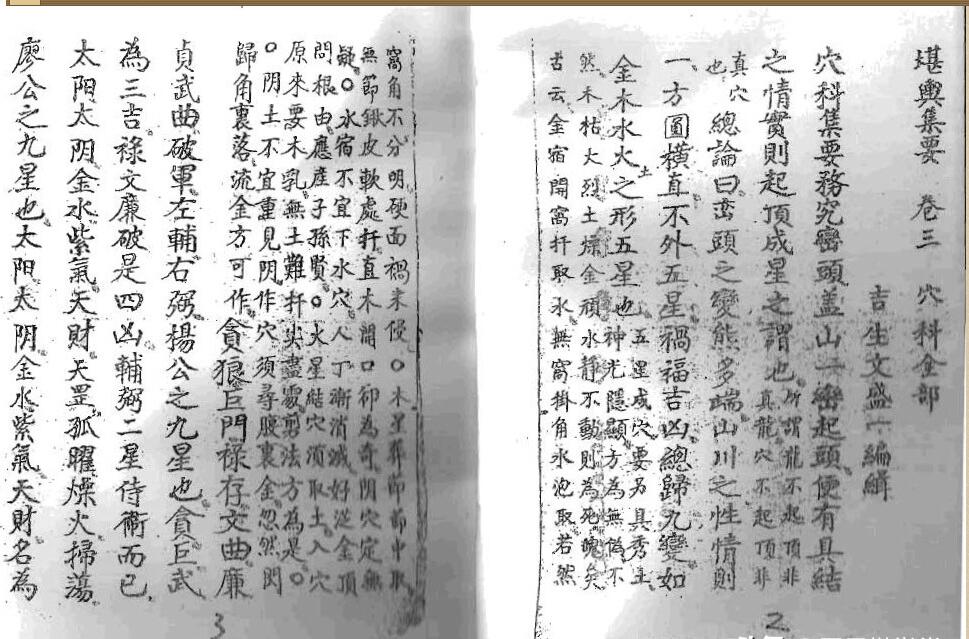 堪輿集要 卷三 穴科全部
吉生文盛一編緝
穴科集要務究巒頭盖山一巒起頭便有具結
之情實則起頂成星之謂也所謂龍不起頂非
真龍穴不起頂非
真穴
也總論曰巒頭之變態多端山川之性情則
一方圓橫直不外五星禍福吉凶總歸九變如
金木水火土之形五星也五星成穴要另具秀土
神光隱顯方為無偽不
然木枯火烈土燥金頑水靜不動則為死魄矣
古云金宿開窩扦取水無窩掛角水泡取若然
2
窩角不分明硬面禍來侵○木星葬節節中取
無節鍬皮軟處扦直木開口仰為奇阴穴定無
疑○水宿不宜下水穴人丁漸消滅好逆金頂
問根由應産子孫賢○火星結穴須取土入穴
原來要木乳無土難扦尖盡處剪法方為是○
○阴土不宜重見阴作穴須尋腰裏金忽然閃
歸角裏落流金方可作貪狼巨門祿存文曲廉
貞武曲破軍左輔右弼楊公之九星也貪巨武
為三吉祿文廉破是四凶輔弼二星侍衛而已
太阳太阴金水紫氣天財天罡孤曜燥火掃蕩
廖公之九星也太阳太阴金水紫氣天財名為
3